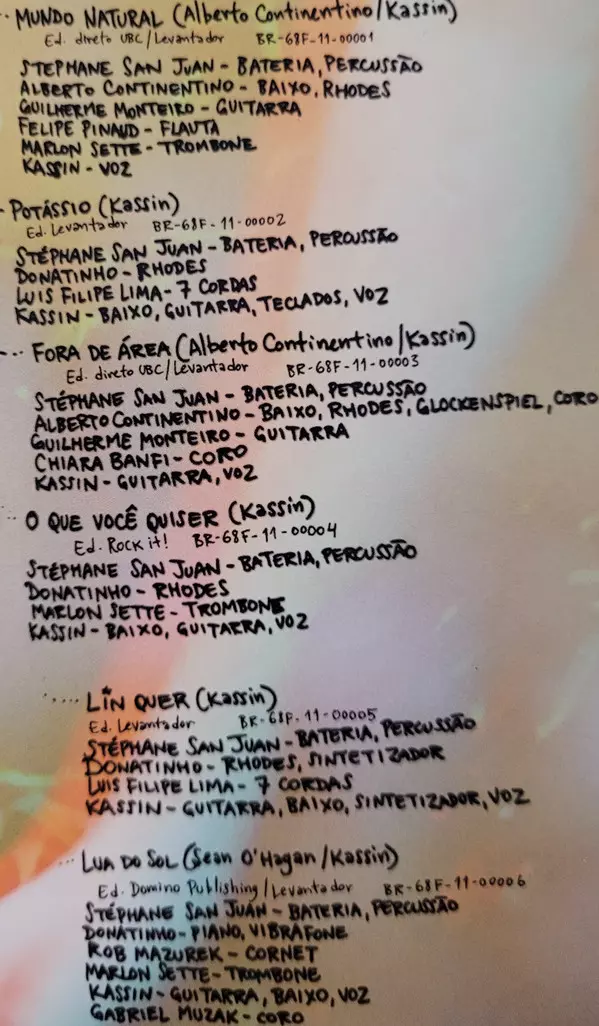 ·· MUNDO NATURAL (Alberto Continentino/Kassin)
Ed. direto UBC/Levantador BR-68F-11-00001
STEPHANE SAN JUAN - BATERIA, PERCUSSÃO
ALBERTO CONTINENTINO - BAIXO, RHODES
GUILHERME MONTEIRO - GUITARRA
FELIPE PINAUD - FLAUTA
MARLON SETTE - TROMBONE
KASSIN - VOZ
- POTÁSSIO (Kassin)
Ed. Levantador BR-68F-11-00002
STÉPHANE SAN JUAN - BATERIA, PERCUSSÃO
DONATINHO - RHODES
LUIS FILIPE LIMA - 7 CORDAS
KASSIN - BAIXO, GUITARRA, TECLADOS, VOZ
··· FORA DE ÁREA (Alberto Continentino/Kassin)
Ed. direto UBC/Levantador BR-68F-11-00003
STÉPHANE SAN JUAN - BATERIA, PERCUSSÃO
ALBERTO CONTINENTINO - BAIXO, RHODES, GLOCKENSPIEL, CORO
GUILHERME MONTEIRO - GUITARRA
CHIARA BANFI - CORO
KASSIN - GUITARRA, VOZ
·· O QUE VOCÊ QUISER (Kassin)
Ed. Rock it! BR-68F-11-00004
STÉPHANE SAN JUAN - BATERIA, PERCUSSÃO
DONATINHO - RHODES
MARLON SETTE - TROMBONE
KASSIN - BAIXO, GUITARRA, VOZ
····· LIN QUER (Kassin)
Ed. Levantador BR-68F-11-00005
STÉPHANE SAN JUAN - BATERIA, PERCUSSÃO
DONATINHO - RHODES, SINTETIZADOR
LUIS FILIPE LIMA - 7 CORDAS
KASSIN - GUITARRA, BAIXO, SINTETIZADOR, VOZ
··· LUA DO SOL (Sean O'Hagan/Kassin)
Ed. Domino Publishing/Levantador BR-68F-11-00006
STÉPHANE SAN JUAN - BATERIA, PERCUSSÃO
DONATINHO - PIANO, VIBRAFONE
ROB MAZUREK - CORNET
MARLON SETTE - TROMBONE
KASSIN - GUITARRA, BAIXO, VOZ
GABRIEL MUZAK - CORO